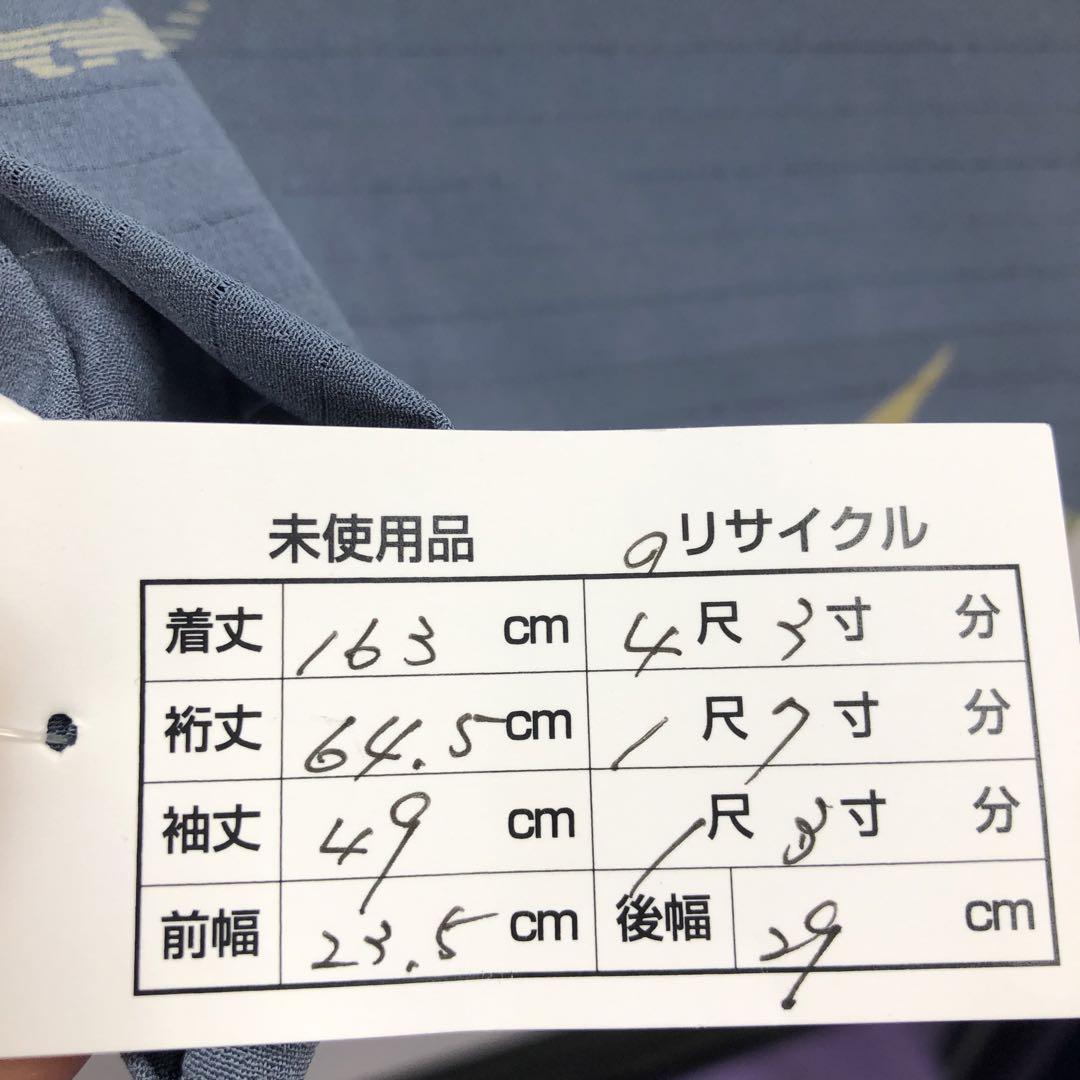 未使用品 リサイクル
着丈 163 cm 4尺3寸 分
裄丈 64.5cm 1尺7寸 分
袖丈 49 cm 1尺3寸 分
前幅 23.5 cm 後幅 29 cm